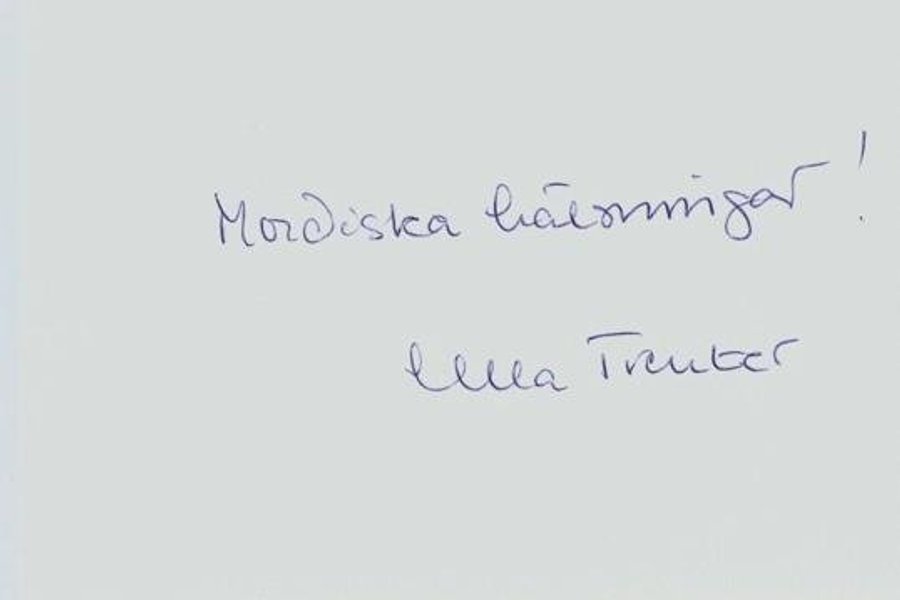 Mordiska hälsningar!
Ulla Trenter